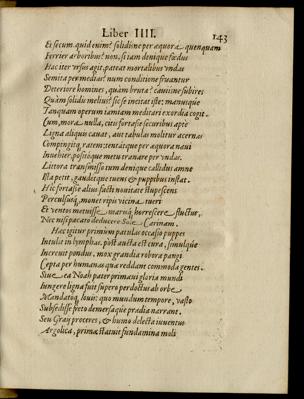 Liber IIII. 143
Et secum. quid enim? solidis ne per æquora quenquam
Ferrier arboribus? non, si tam denique fœdus
Hac iter ursus apit, pateat mortalibus undas
Semita per medias? num conditione fruantur
Deteriore homines, quàm bruta?
Quàm solidi melius? sic se incitat iste; manuque
Tanquam operum iamiam meditari exordia cogit.
Cum, mora nulla, citus fortasse securibus aptè
Ligna aliquis cavat, aut tabulas molitur acernas
Compingitq; ratem; tentatque per æquora navi
Invehier, postòque metu tranare per undas.
Littora transmissa tum denique callidus amne
Ista petit, gaudetque tuens & puppibus instat.
Hic fortasse alius facti novitate stupescens
Perculsusq; monet ripis vicina tueri
Et ventos metuisse, marisq; horrescere fluctus,
Nec nisi parato deducere Carinam.
Hac igitur primùm patulas occasio puppes
Intulit in lymphas. pòst aucta est cura, simulque
Increuit pondus, mox grandia robora pangi
Cepta per humanas quæ reddant commoda gentes.
Sive ea Noah pater primævi gloria mundi
Iungere ligna fuit supero perdoctus ab orbe
Mandatoq; Iouis: quo mundum tempore, vasto
Subsedisse freto demersaque prædia narrant.
Seu Graij proceres, & humo delecta iuventus
Argolica, primæ statuit fundamina moli